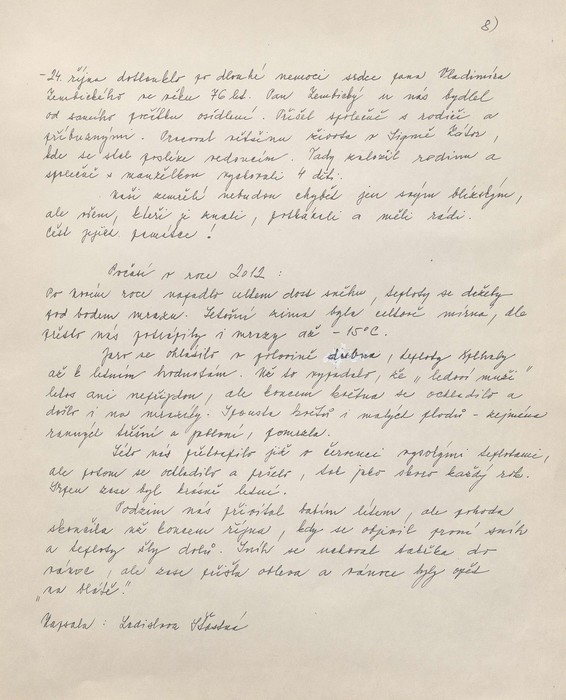 8)
- 24. října dotlouklo po dlouhé nemoci srdce pana Vladimíra
Zembického ve věku 76 let. Pan Zembický u nás bydlel
od samého počátku osídlení. Přišel společně s rodiči a
příbuznými. Pracoval většinu života v Sigmě Zátor,
kde se stal posléze vedoucím. Tady založil rodinu a
společně s manželkou vychovali 4 děti.
Naši zemřelí nebudou chybět jen svým blízkým,
ale všem, kteří je znali, potkávali a měli rádi.
Čest jejich památce!
Počasí v roce 2012 :
Po novém roce napadlo celkem dost sněhu, teploty se držely
pod bodem mrazu. Letošní zima byla celkově mírná, ale
přesto nás potrápily i mrazy až -15°C.
Jaro se ohlásilo v polovině dubna, teploty
až k letním hodnotám. Už to vypadalo, že "ledoví muži"
letos ani nepřijdou, ale koncem května se ochladilo a
došlo i na mrazíky. Spousta květů i malých plodů - zejména
raných třešní a jabloní, pomrzla.
Léto nás překvapilo již v červenci vysokými teplotami,
ale potom se ochladilo a pršelo, tak jako skoro každý rok.
Srpen zase byl krásně letní.
Podzim nás přivítal babím létem, ale pohoda
skončila už koncem října, kdy se objevil první sníh
a teploty šly dolů. Sníh se udržoval takřka do
vánoc, ale zase přišla obleva a vánoce byly opět
"na blátě."
Zapsala : Ladislava Šťastná